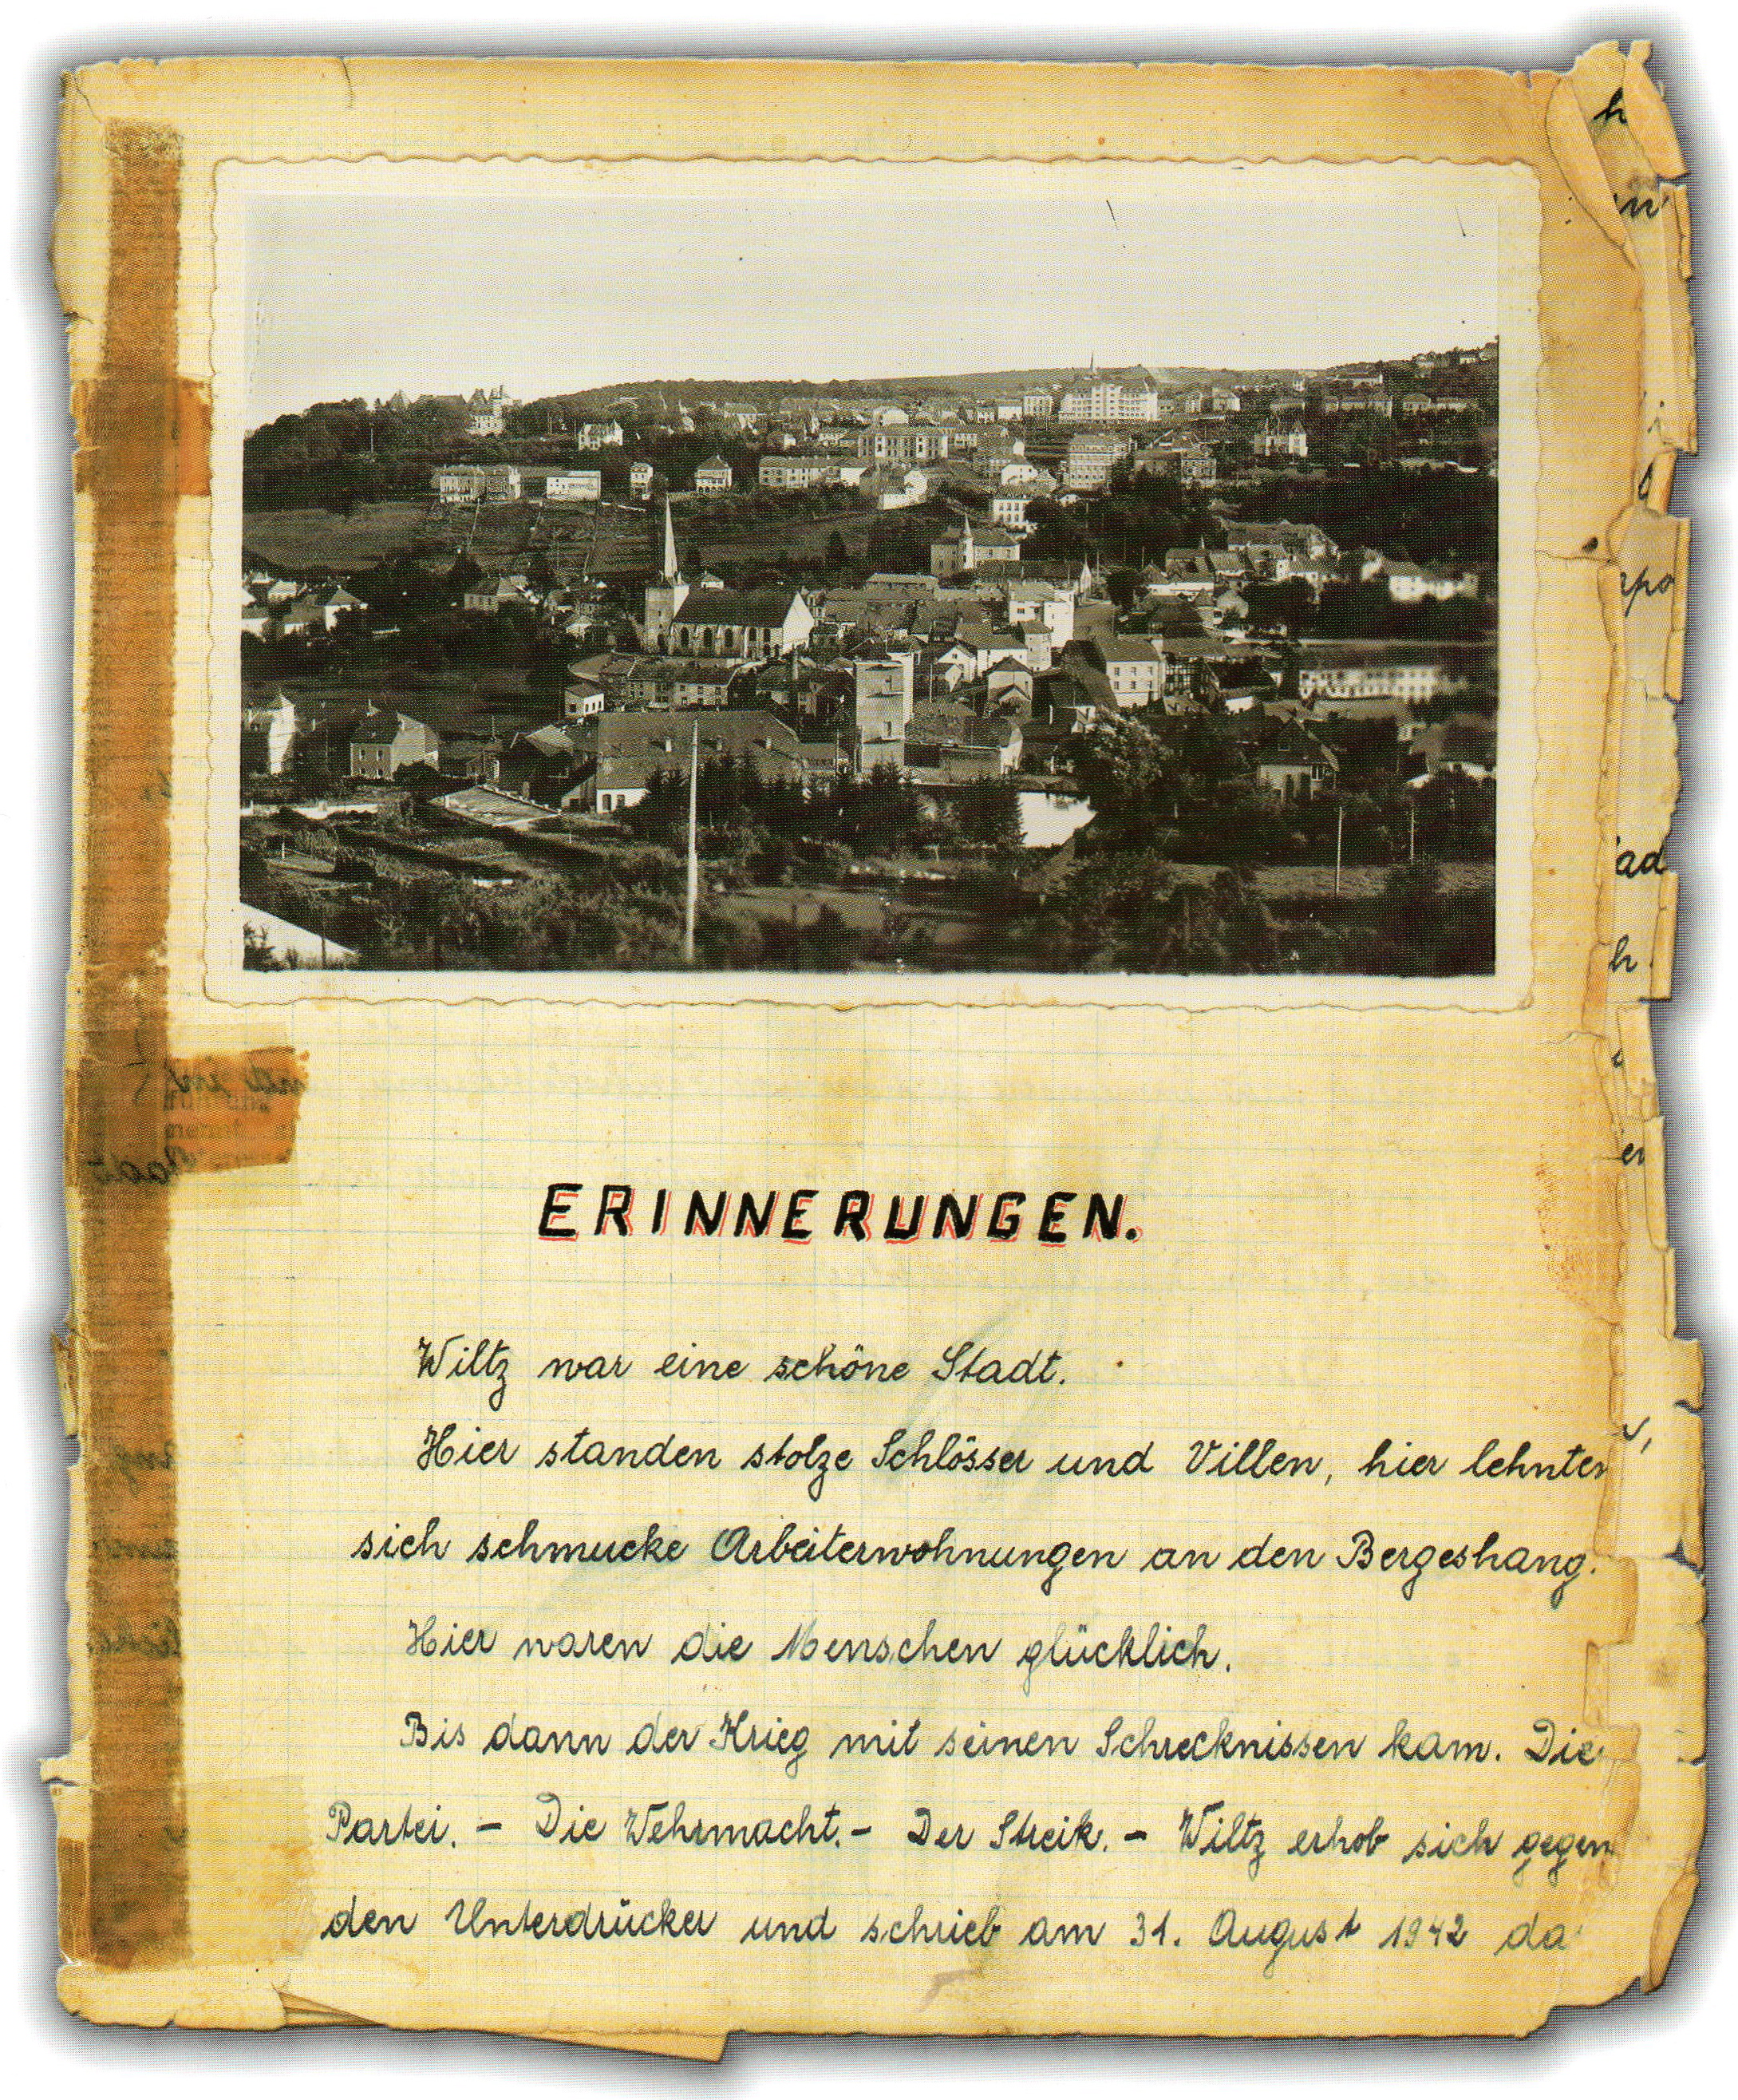 ERINNERUNGEN.
Wiltz war eine schöne Stadt.
Hier standen stolze Schlösser und Villen, hier lehnten
sich schmucke Arbeiterwohnungen an den Bergeshang.
Hier waren die Menschen glücklich.
Bis dann der Krieg mit seinen Schrecknissen kam. Die
Partei. – Die Wehrmacht. – Der Streik. – Wiltz erhob sich gegen
den Unterdrücker und schrieb am 31. August 1942 da